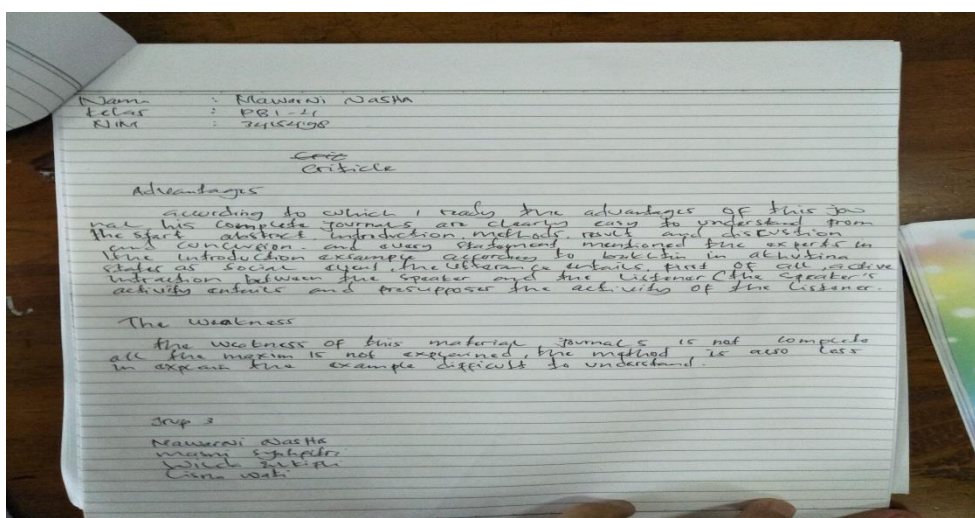 Nama : Mawarni Nasha
Kelas : PBI-4
NIM : 34154198
Criticle
Advantages
according to which I ready the advantages of this jou
nal his complete journals are clearly easy to understand from
the start abstract, introduction, methods, result and discustion
and conclusion. and every statement mentioned the experts in
the introduction example according to in
states as social event, the utterance entails, first of all, active
intraction between the speaker and the listener (the speaker's
activity entails and presupposes the activity of the listener.
The weakness
the weakness of this material journals is not complete
all the maxim is not explained, the method is also less
in explain the example difficult to understand.
Grup 3
Mawarni Nasha
Wati